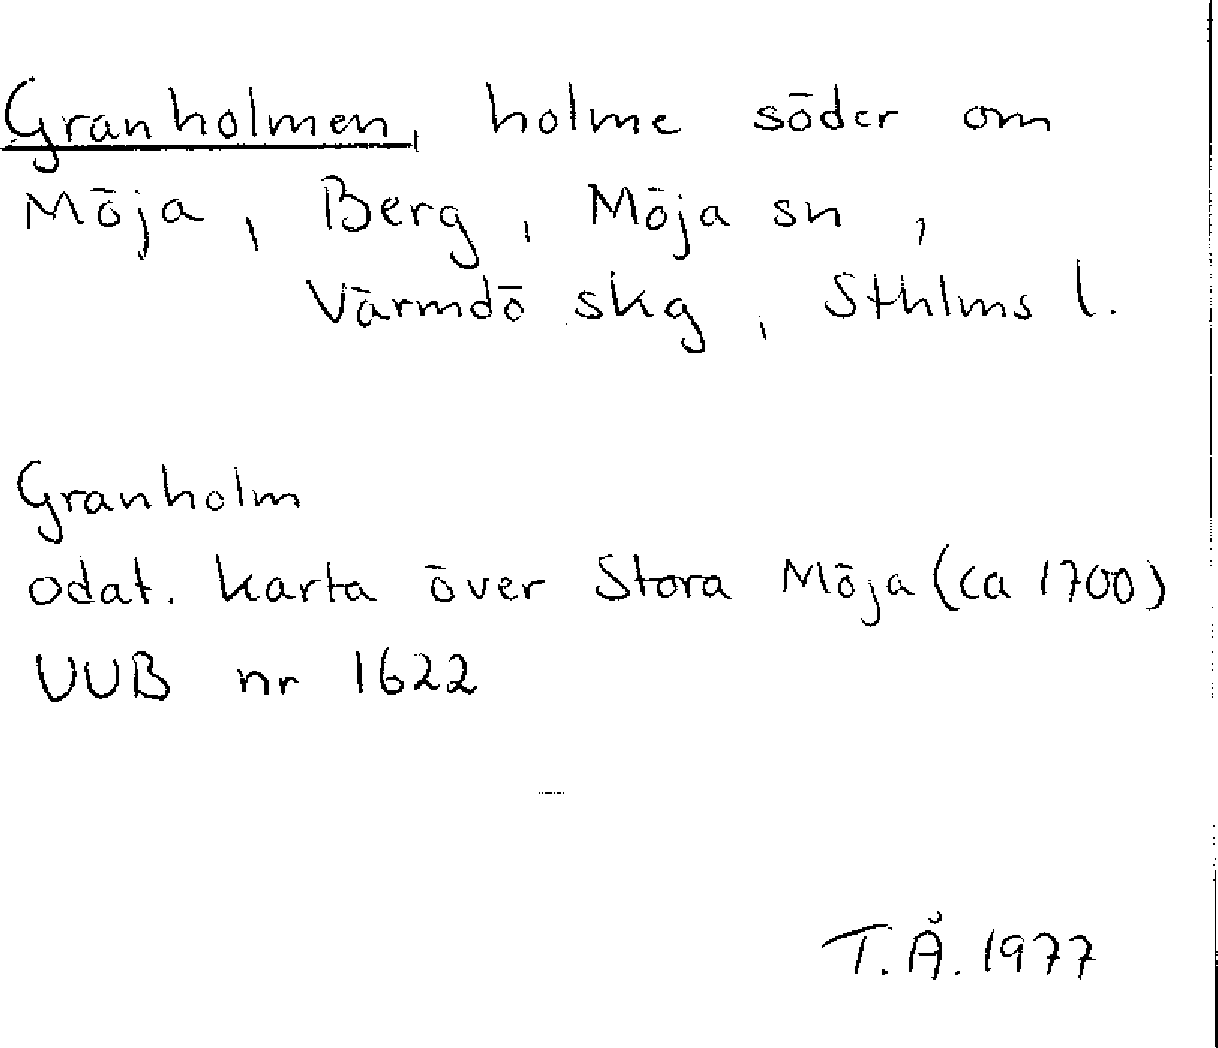 Granholmen, holme söder om
Möja, Berg, Möja sn,
Värmdö skg, Sthlms l.
Granholm
odat. karta över Stora Möja (ca 1700)
UUB nr 1622
T.Å. 1977